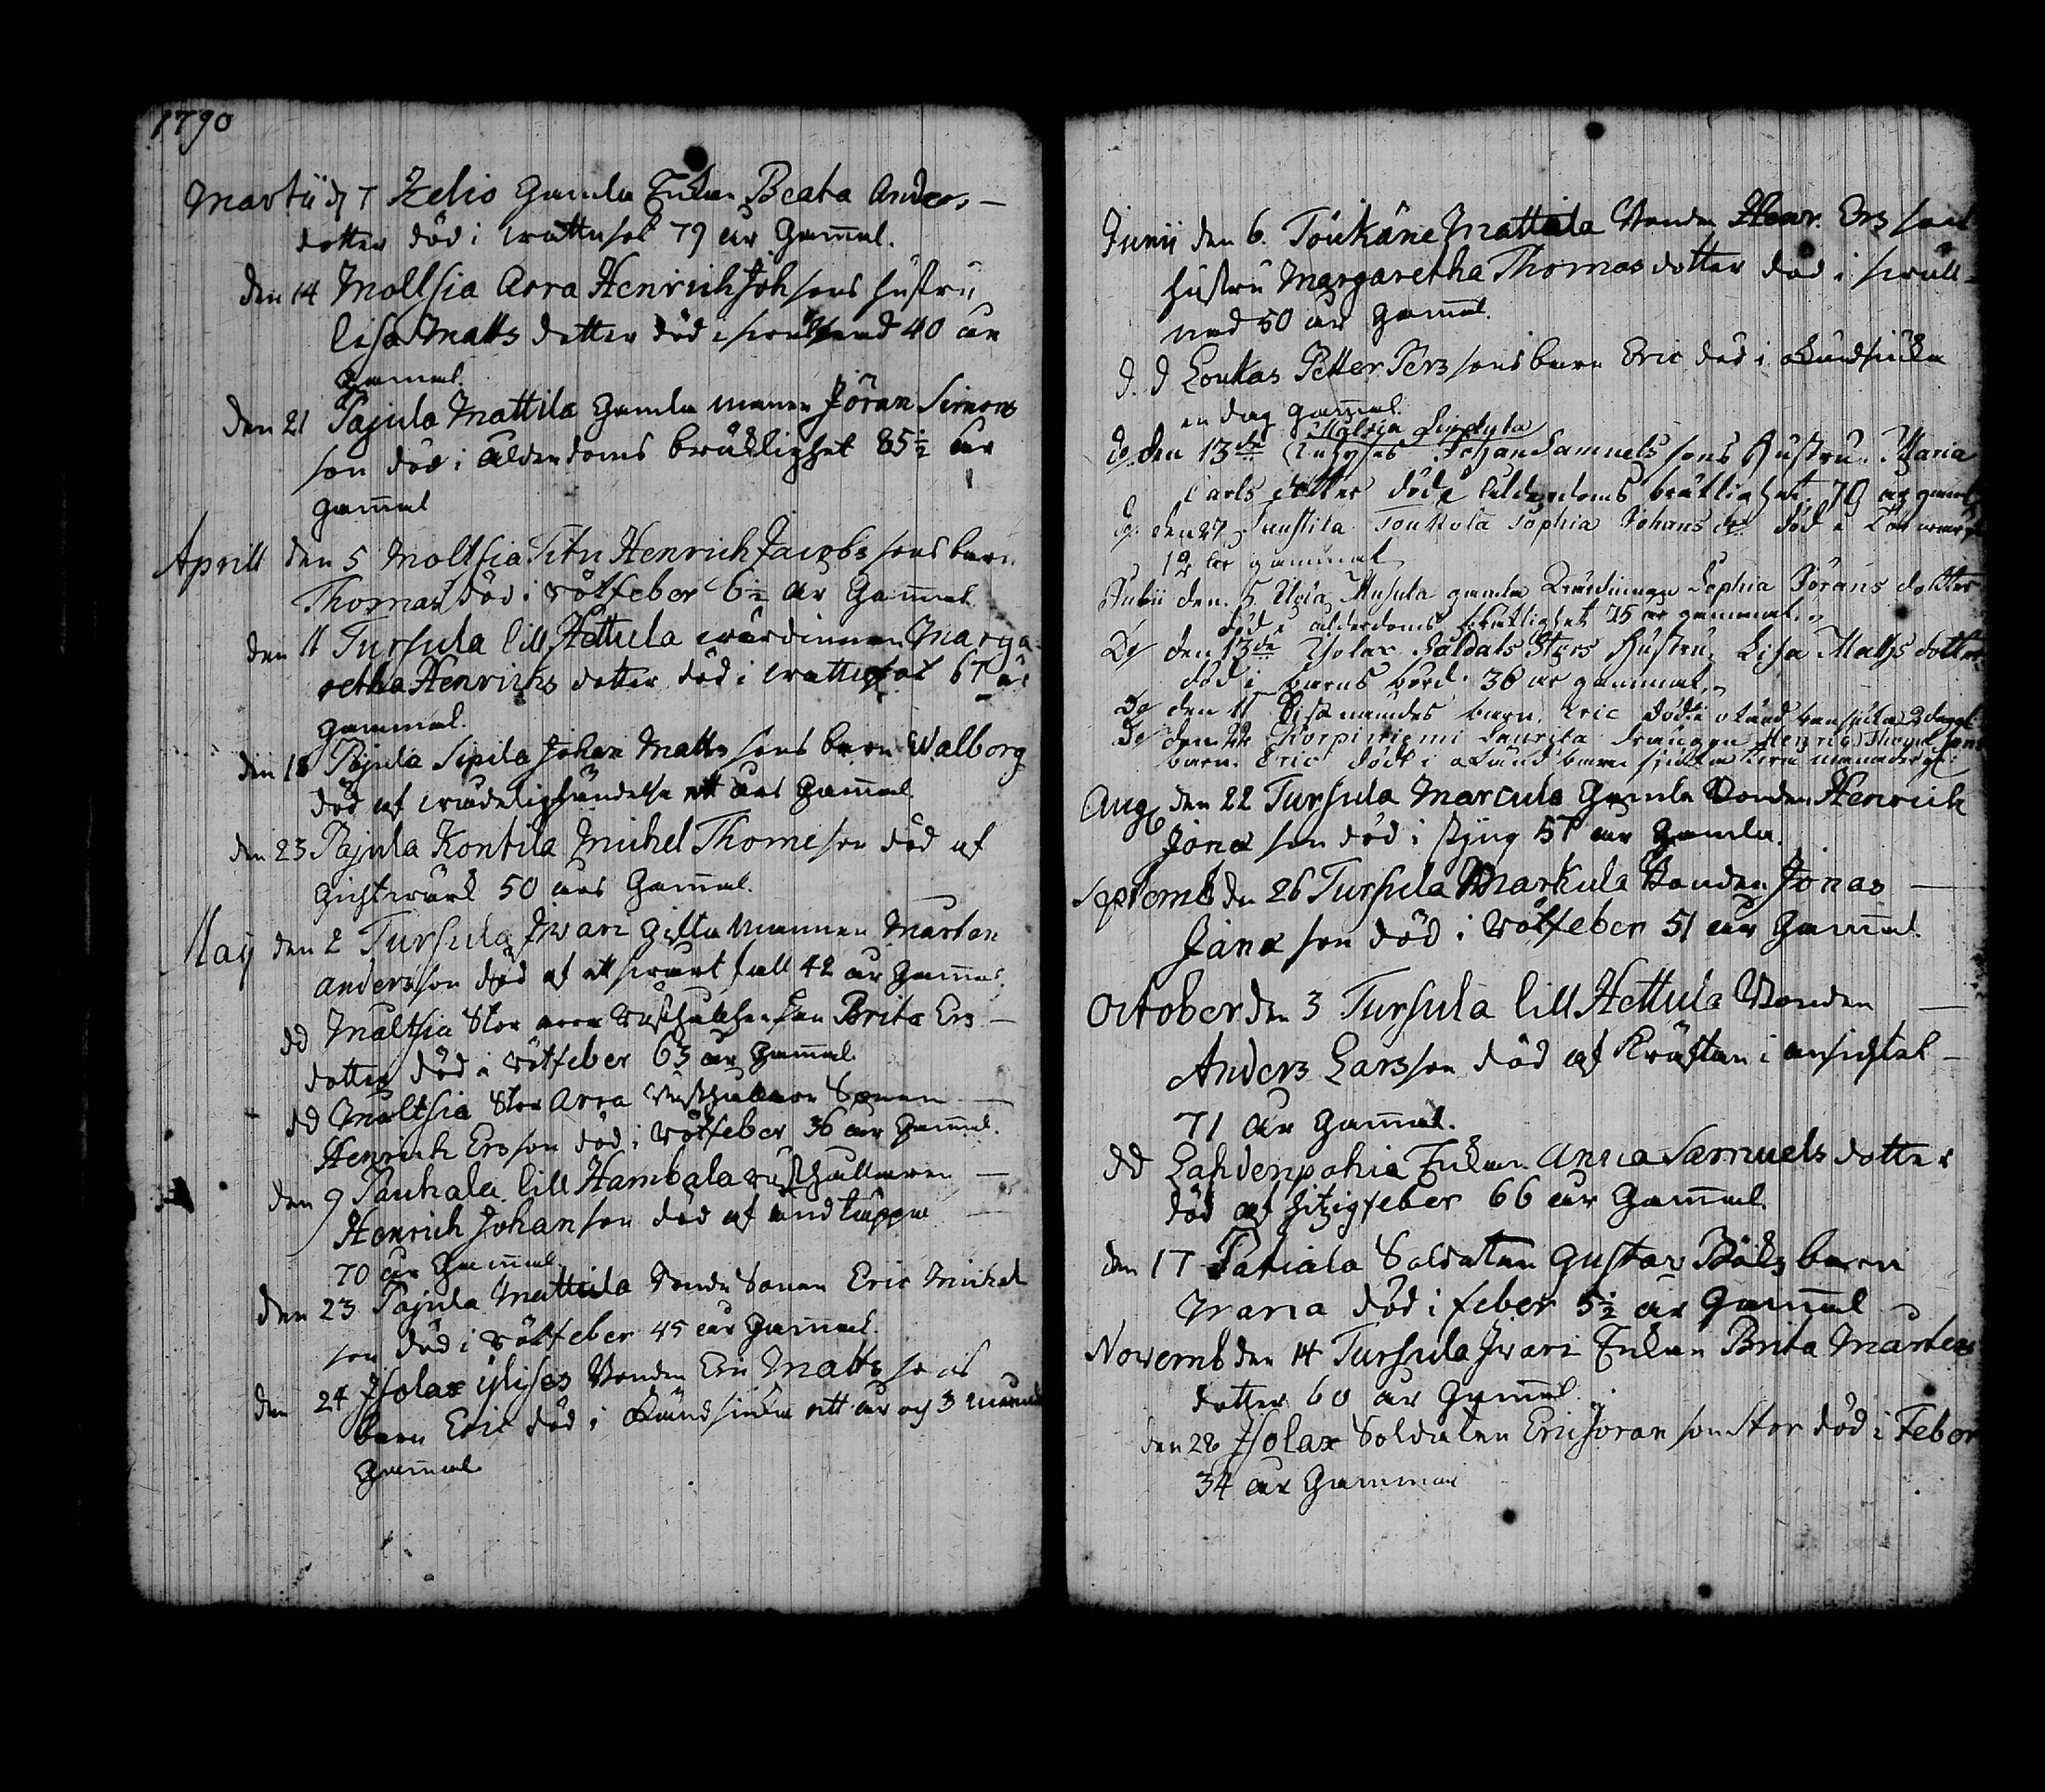 1790
Martii d 7 Helio Gamla Enkan Beata Anders-
dotter död i wattusot 79 år Gamal.
den 14 Moltsia Arra Henrich Joh sons hustru
Lisa Matts dotter död i 40 år
Gamal.
den 21 Pajula Mattila Gamla manen Jöran Simons
son död i Ålderdoms bräklighet 85½ år
Gamal
Aprill den 5 Moltsia Titu Henrich Jacobs sons barn
Thomas död i rötfeber 6½ år Gamal
den 11 Tursula lill Hettula wärdinnan Marga-
retha Henrichs dotter död i wattusot 67 år
Gammal.
den 18 Pajula Sipila Johan Matts sons barn Walborg
död af wådelig händelse ett års Gamal.
den 23 Pajula Kontila Michel Thome son död af
Gichtwärk 50 års Gamal.
May den 2 Tursula Iwari Gifta Mannen Marten
anders son död af ett swårt fall 42 år Gamal.
dd Maltsia Stor arra Brita Ers-
dotter död i rötfeber 63 år Gamal.
dd Moltsia Stor Arra Sonen
Henrich Ersson död i rötfeber 36 år Gamal.
den 9 Pauhala lill Hambala rusthållaren
Henrich Johan son död af andtäppa
70 år Gamal.
den 23 Pajula Mattila Bonde Sonen Eric Michel
son död i rötfeber 45 år Gamal.
den 24 Isolax ÿlises Bonden Eric Matts sons
barn Eric död i okändsiuka ett år och 3 månad
Gamal
Junij den 6. Töukäne Mattila Bonden Henr. Ers sons
hustru Margaretha Thomasdotter död i swull-
nad 50 år Gamal.
d. d Loukas Petter Pers sons barn Eric död i okändsiuka
en dag Gamal.
Maltsia
d. den 13de Johan Samuels sons Hustru. Maria
Carls dotter död i ålderdoms bräklighet. 79 år gamal
d. den 27 Sophia Johans dr död i
12 år gammal
Julii den 5. Musula gamla Wärdinnan Sophia Jörans dotter
död i ålderdoms bräklighet 75 år gammal.
Do den 13de Isolax Soldats Stors Hustru, Lisa Matts dotter
död i barns börd. 36 år gammal.
Do den 11 barn, Eric död i okänd barnsiuka 2 dagar
Do den 22 Korpiniemi Laurila drängen Henric Thome sons
barn. Eric död i okänd barnsiuka månader gl:
Aug den 22 Tursula Marcula Gamla Bonden Henrich
Jona son död i styng 57 år Gamla.
Septemb den 26 Tursula Markula Bonden Jonas
Jona son död i rötfeber 51 år Gamal
October den 3 Tursula lill Hettula Bonden
Anders Larsson död af Kräftan i ansichtet
71 år Gamal.
dd Lahdenpohia Enkan Anna Samuels dotter
död af hitzigfeber 66 år Gamal.
den 17 Patiala Soldaten Gustav Böks barn
Maria död i feber 5½ år Gamal
Novemb den 14 Tursula Iwari Enkan Brita Martens
dotter 60 år Gamal.
den 28 Isolax Soldaten Eric Joran son Stor död i Feber
34 år Gammal